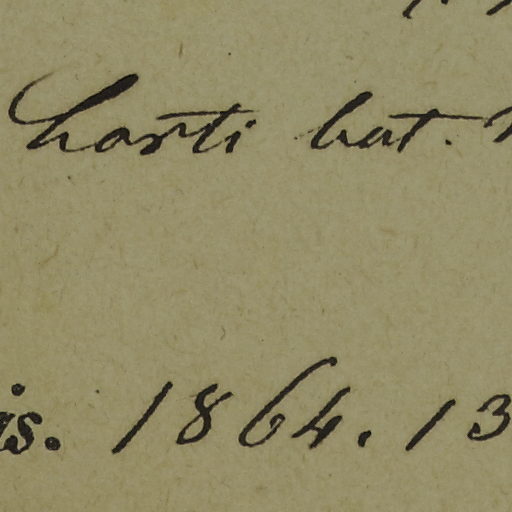 horti bot.
is. 1864. 13